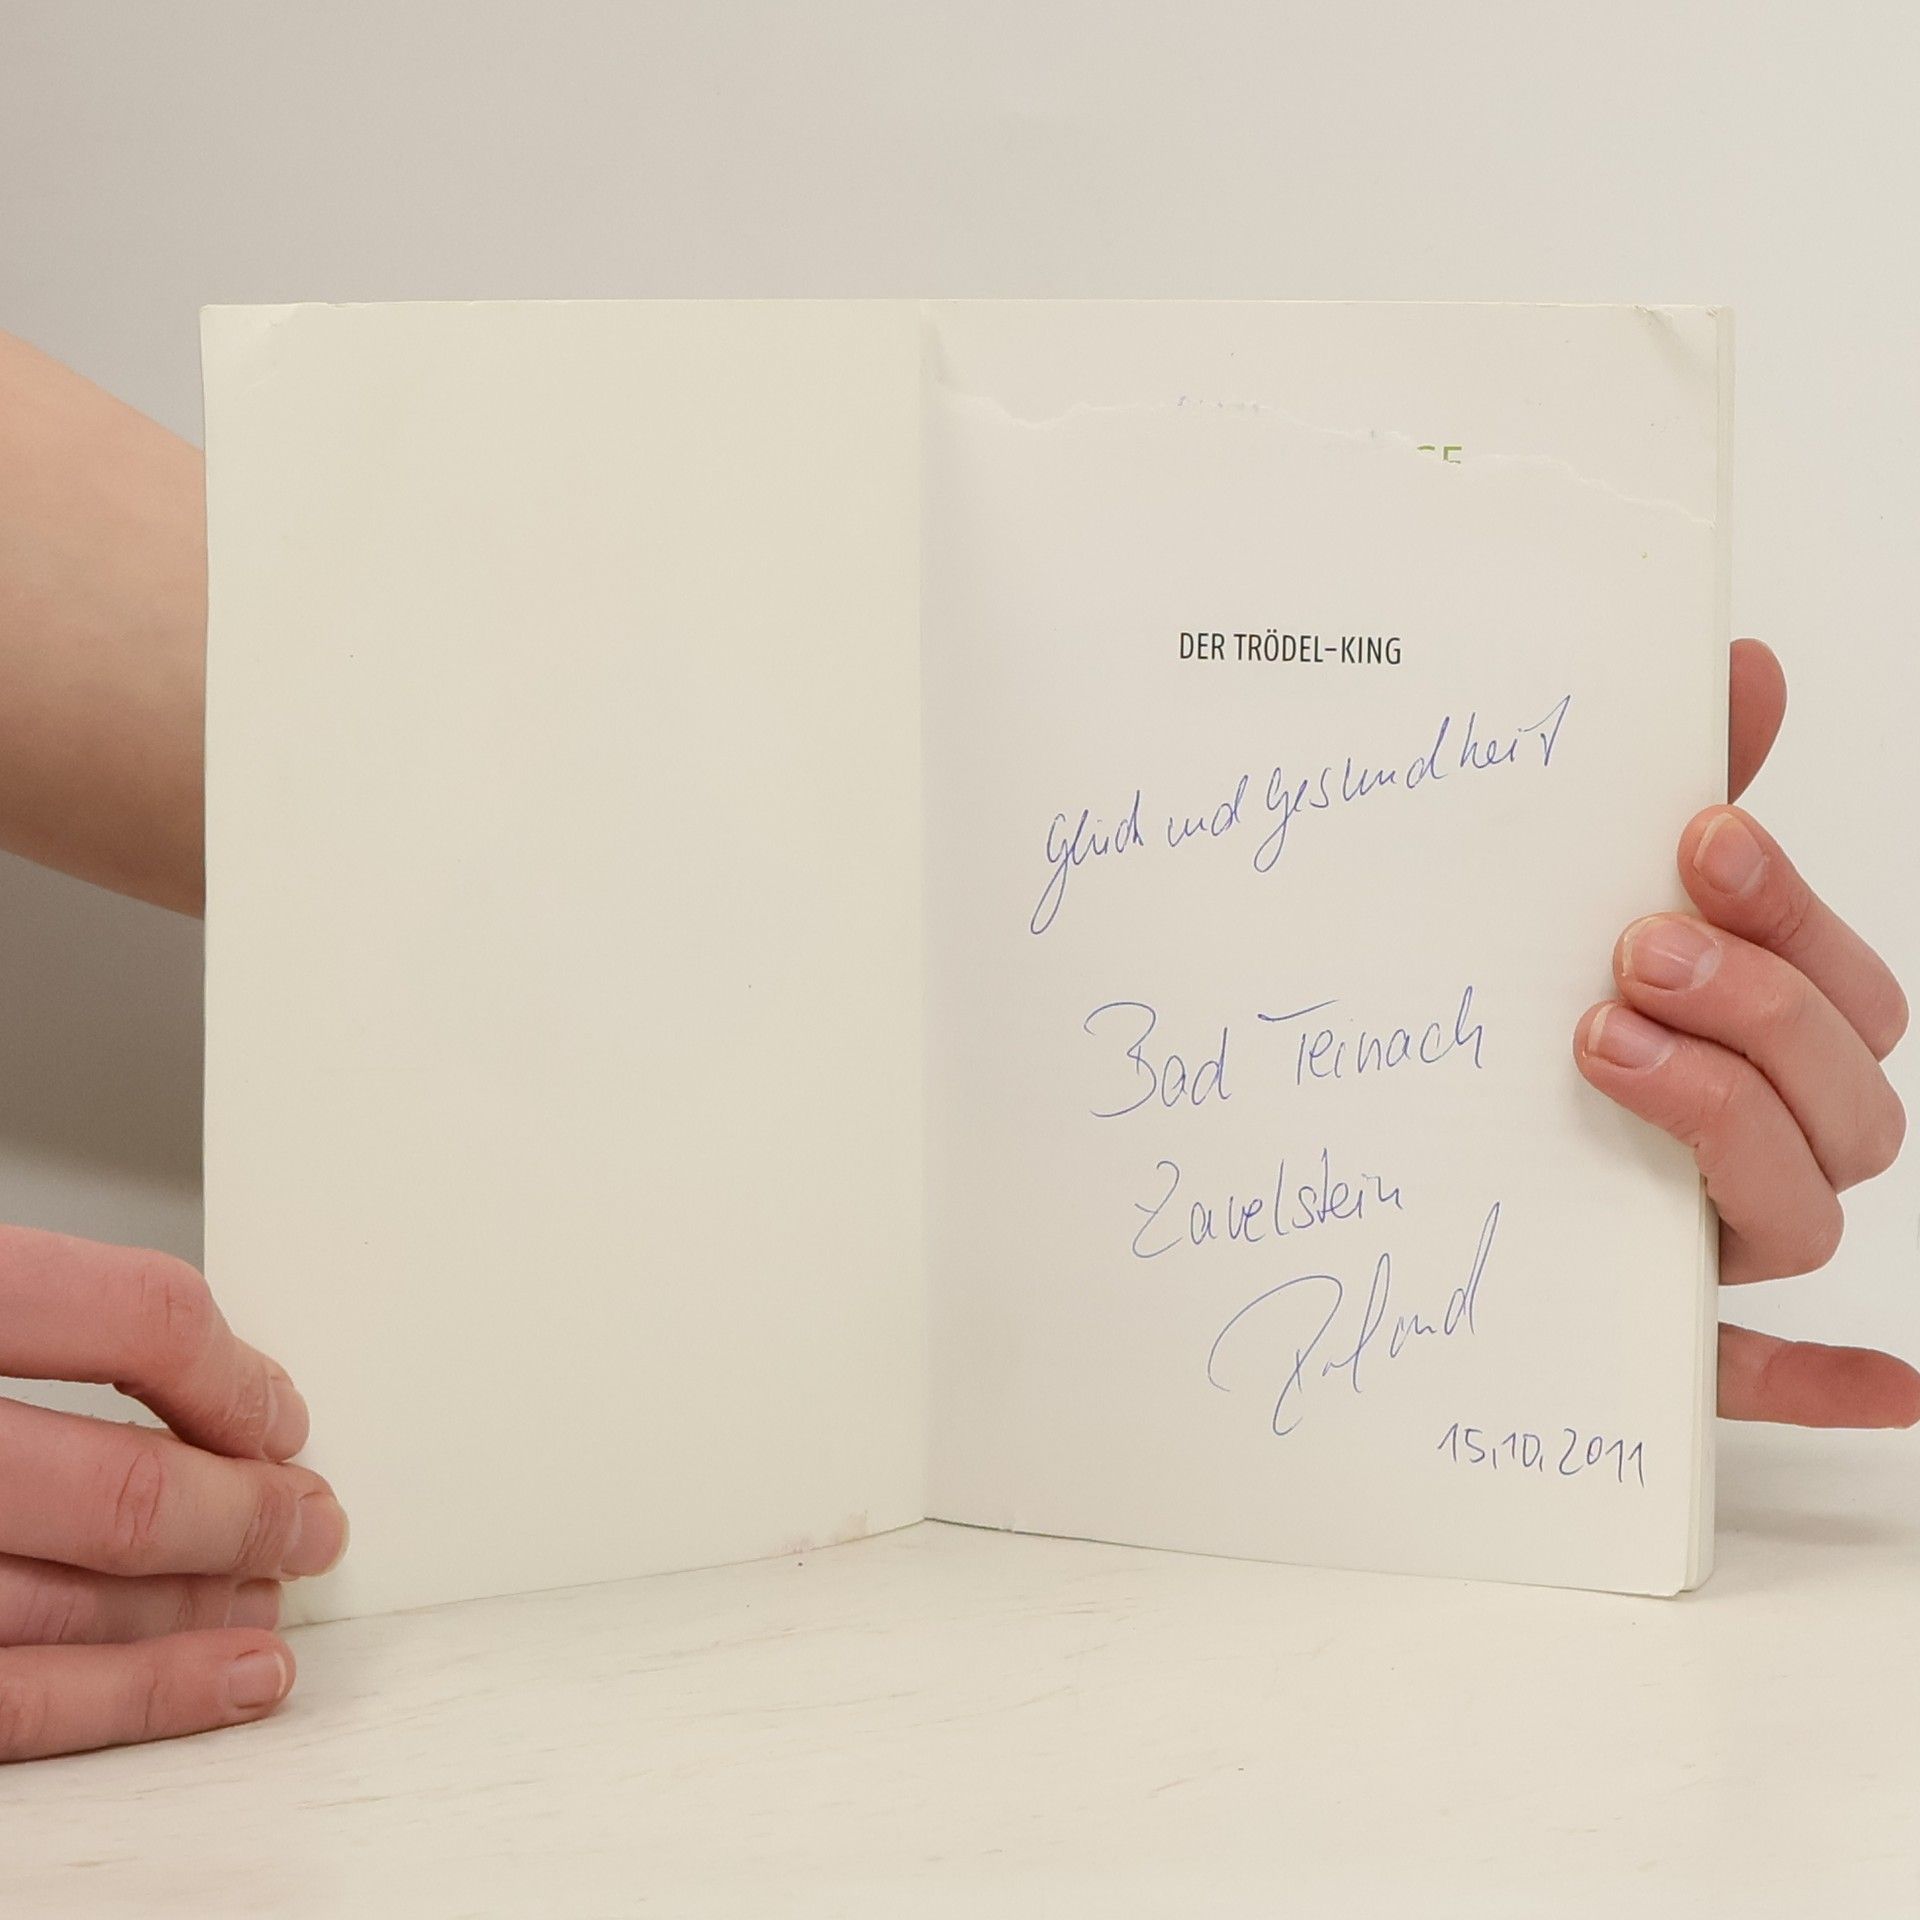 GE
DER TRÖDEL-KING
Glück und Gesundheit
Bad Teinach
Zavelstein
Roland
15.10.2011